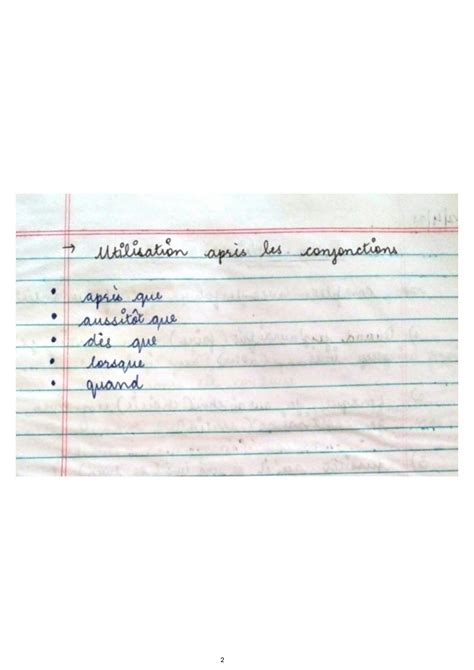 → Utilisation après les conjonctions
• après que
• aussitôt que
• dès que
• lorsque
• quand
2